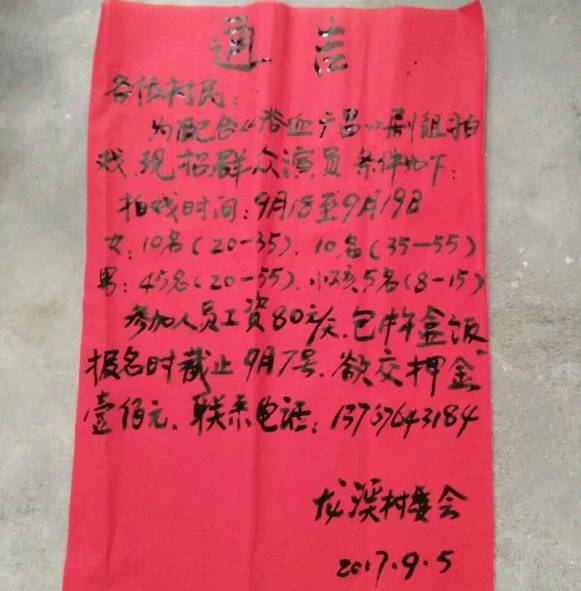 通告
各位村民：
为配合《浴血广昌》剧组拍
戏、现招群众演员条件如下：
拍戏时间：9月18至9月19日
女：10名(20—35)、10名(35—55)
男：45名(20—55)、小孩5名(8—15)
参加人员工资80元/天.包中午盒饭
报名时截止9月7号.欲交押金
壹佰元.联系电话：13767643184
龙溪村委会
2017.9.5